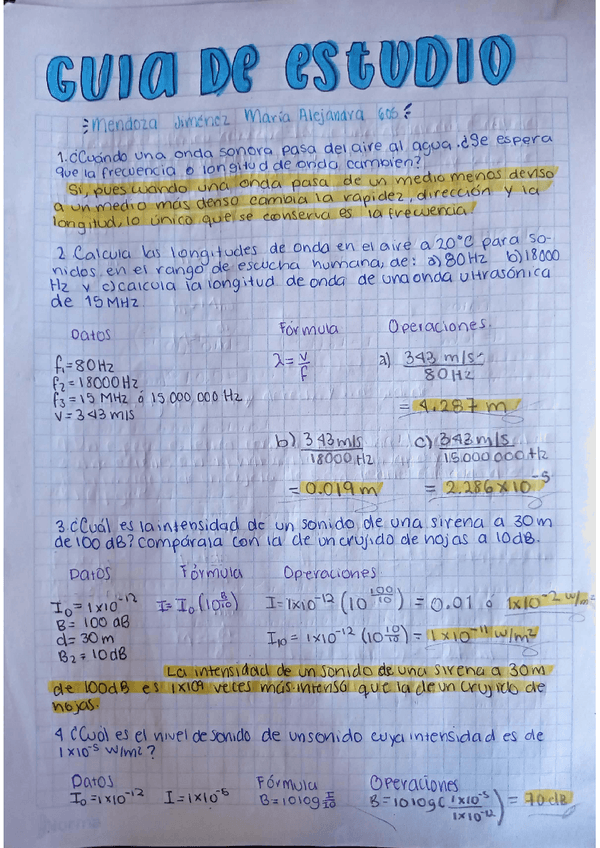 GUIA DE ESTUDIO
Mendoza Jiménez María Alejandra 606
1. ¿Cuándo una onda sonora pasa del aire al agua. ¿Se espera
que la frecuencia o longitud de onda cambien?
Si, pues cuando una onda pasa de un medio menos denso
a un medio más denso cambia la rapidez, dirección y la
longitud, lo único que se conserva es la frecuencia.
2. Calcula las longitudes de onda en el aire a 20°C para so-
nidos en el rango de escucha humana, de: a) 80Hz b) 18000
Hz y c) calcula la longitud de onda de una onda ultrasónica
de 15 MHz.
Datos Fórmula Operaciones.
f₁=80Hz
f₂=18000Hz
f₃=15 MHz ó 15 000,000 Hz
V=343 m/s
λ=v/f
a) 343 m/s / 80Hz
= 4.287 m
b) 343 m/s / 18000 Hz c) 343 m/s / 15 000 000 Hz
= 0.019 m = 2.286x10⁻⁵
3. ¿Cuál es la intensidad de un sonido de una sirena a 30m
de 100 dB? Compárala con la de un crujido de hojas a 10dB.
Datos Fórmula Operaciones
I₀=1x10⁻¹² I=I₀(10^B/10) I=1x10⁻¹² (10^100/10) = 0.01 ó 1x10⁻² w/m²
B= 100 dB
d= 30m I₁₀= 1x10⁻¹² (10^10/10) = 1x10⁻¹¹ w/m²
B₂= 10dB
La intensidad de un sonido de una sirena a 30m
de 100dB es 1x10⁹ veces más intensa que la de un crujido de
hojas.
4. ¿Cuál es el nivel de sonido de un sonido cuya intensidad es de
1x10⁻⁵ W/m²?
Datos Fórmula Operaciones
I₀=1x10⁻¹² I=1x10⁻⁵ B=10log I/I0 B=10log(1x10⁻⁵ / 1x10⁻¹²) = 70 dB